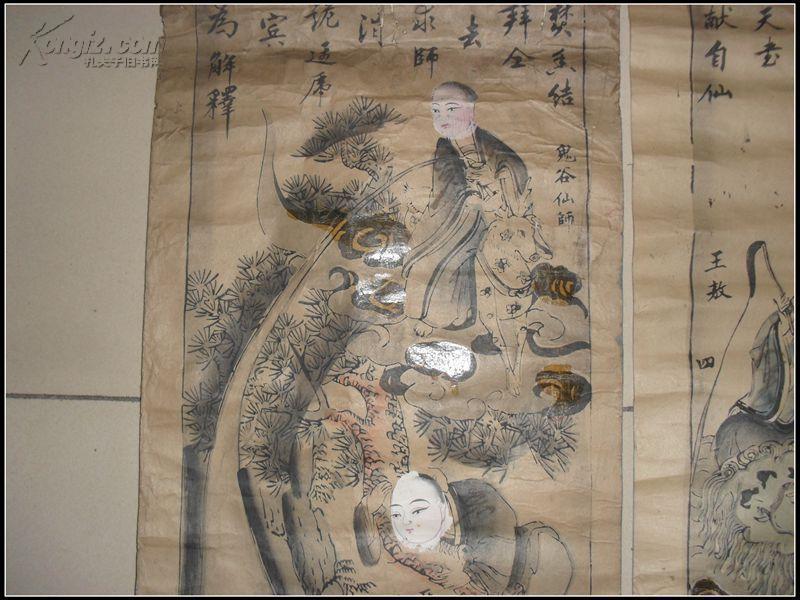 Kongfz.com
孔夫子旧书网
天
献自仙
王敖
四
焚香結
拜全
去
求師
消
席
賓
為解釋
鬼谷仙師